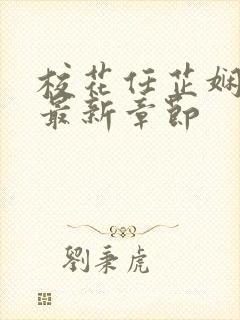 校花任芷娴
最新章节
劉秉虎